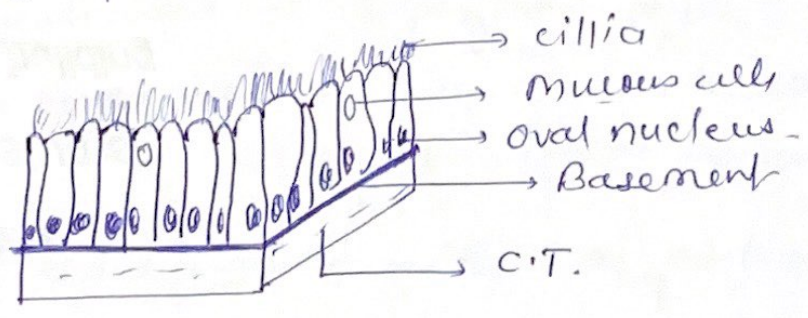 cillia
Mucous cells
Oval nucleus
Basement
C.T.